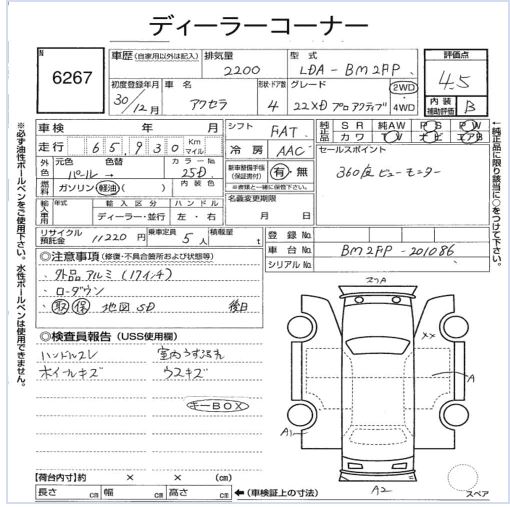 ディーラーコーナー
N
6267
車歴 (自家用以外は記入)
排気量
2200
型式
LDA-BM2FP
評価点
4.5
初度登録年月
30年12月
車名
アクセラ
形状・ドア数
4
グレード
22XD プロアクティブ
2WD
4WD
内装補助評価
B
車検 年 月
シフト
FAT
純正品
SR 純AW PS PW
カワ TV ナビ エアB
走行 65,930 Km マイル
冷房
AAC
セールスポイント
360度ビューモニター
外色
元色 色替
パール→
カラーNo
25D
新車整備手帳(保証書付)
有・無
※書類と一緒に保管下さい。
燃料
ガソリン・軽油・( )
内装色
名義変更期限
月 日
輸入車用
年式 輸入区分 ハンドル
ディーラー・並行 左・右
リサイクル預託金
11220円
乗車定員
5人
積載量
t
登録No
車台No
BM2FP-201086
シリアルNo
◎注意事項 (修復・不具合箇所および状態等)
・外品アルミ(17インチ)
・ローダウン
・取 保 地図SD 後日
◎検査員報告 (USS使用欄)
ハンドルスレ 室内うす汚れ
ホイールキズ ウスキズ
キーBOX
スリA
××
A
A1
A2
スペア
【荷台内寸】約 × × (cm)
長さ cm 幅 cm 高さ cm
←(車検証上の寸法)
※必ず油性ボールペンをご使用下さい。水性ボールペンは使用できません。
←純正品に限り該当に○をつけて下さい。